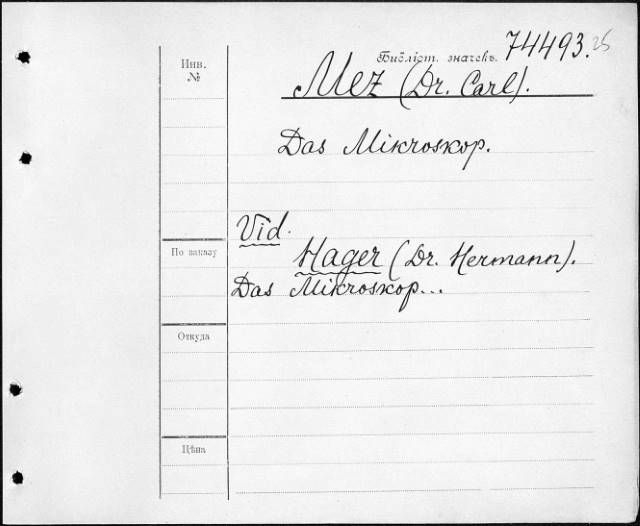 Инв.
№
Библіот. значекъ. 74493. 25
Mez (Dr. Carl).
Das Mikroskop.
Vid.
Hager (Dr. Hermann).
Das Mikroskop...
По заказу
Откуда
Цѣна